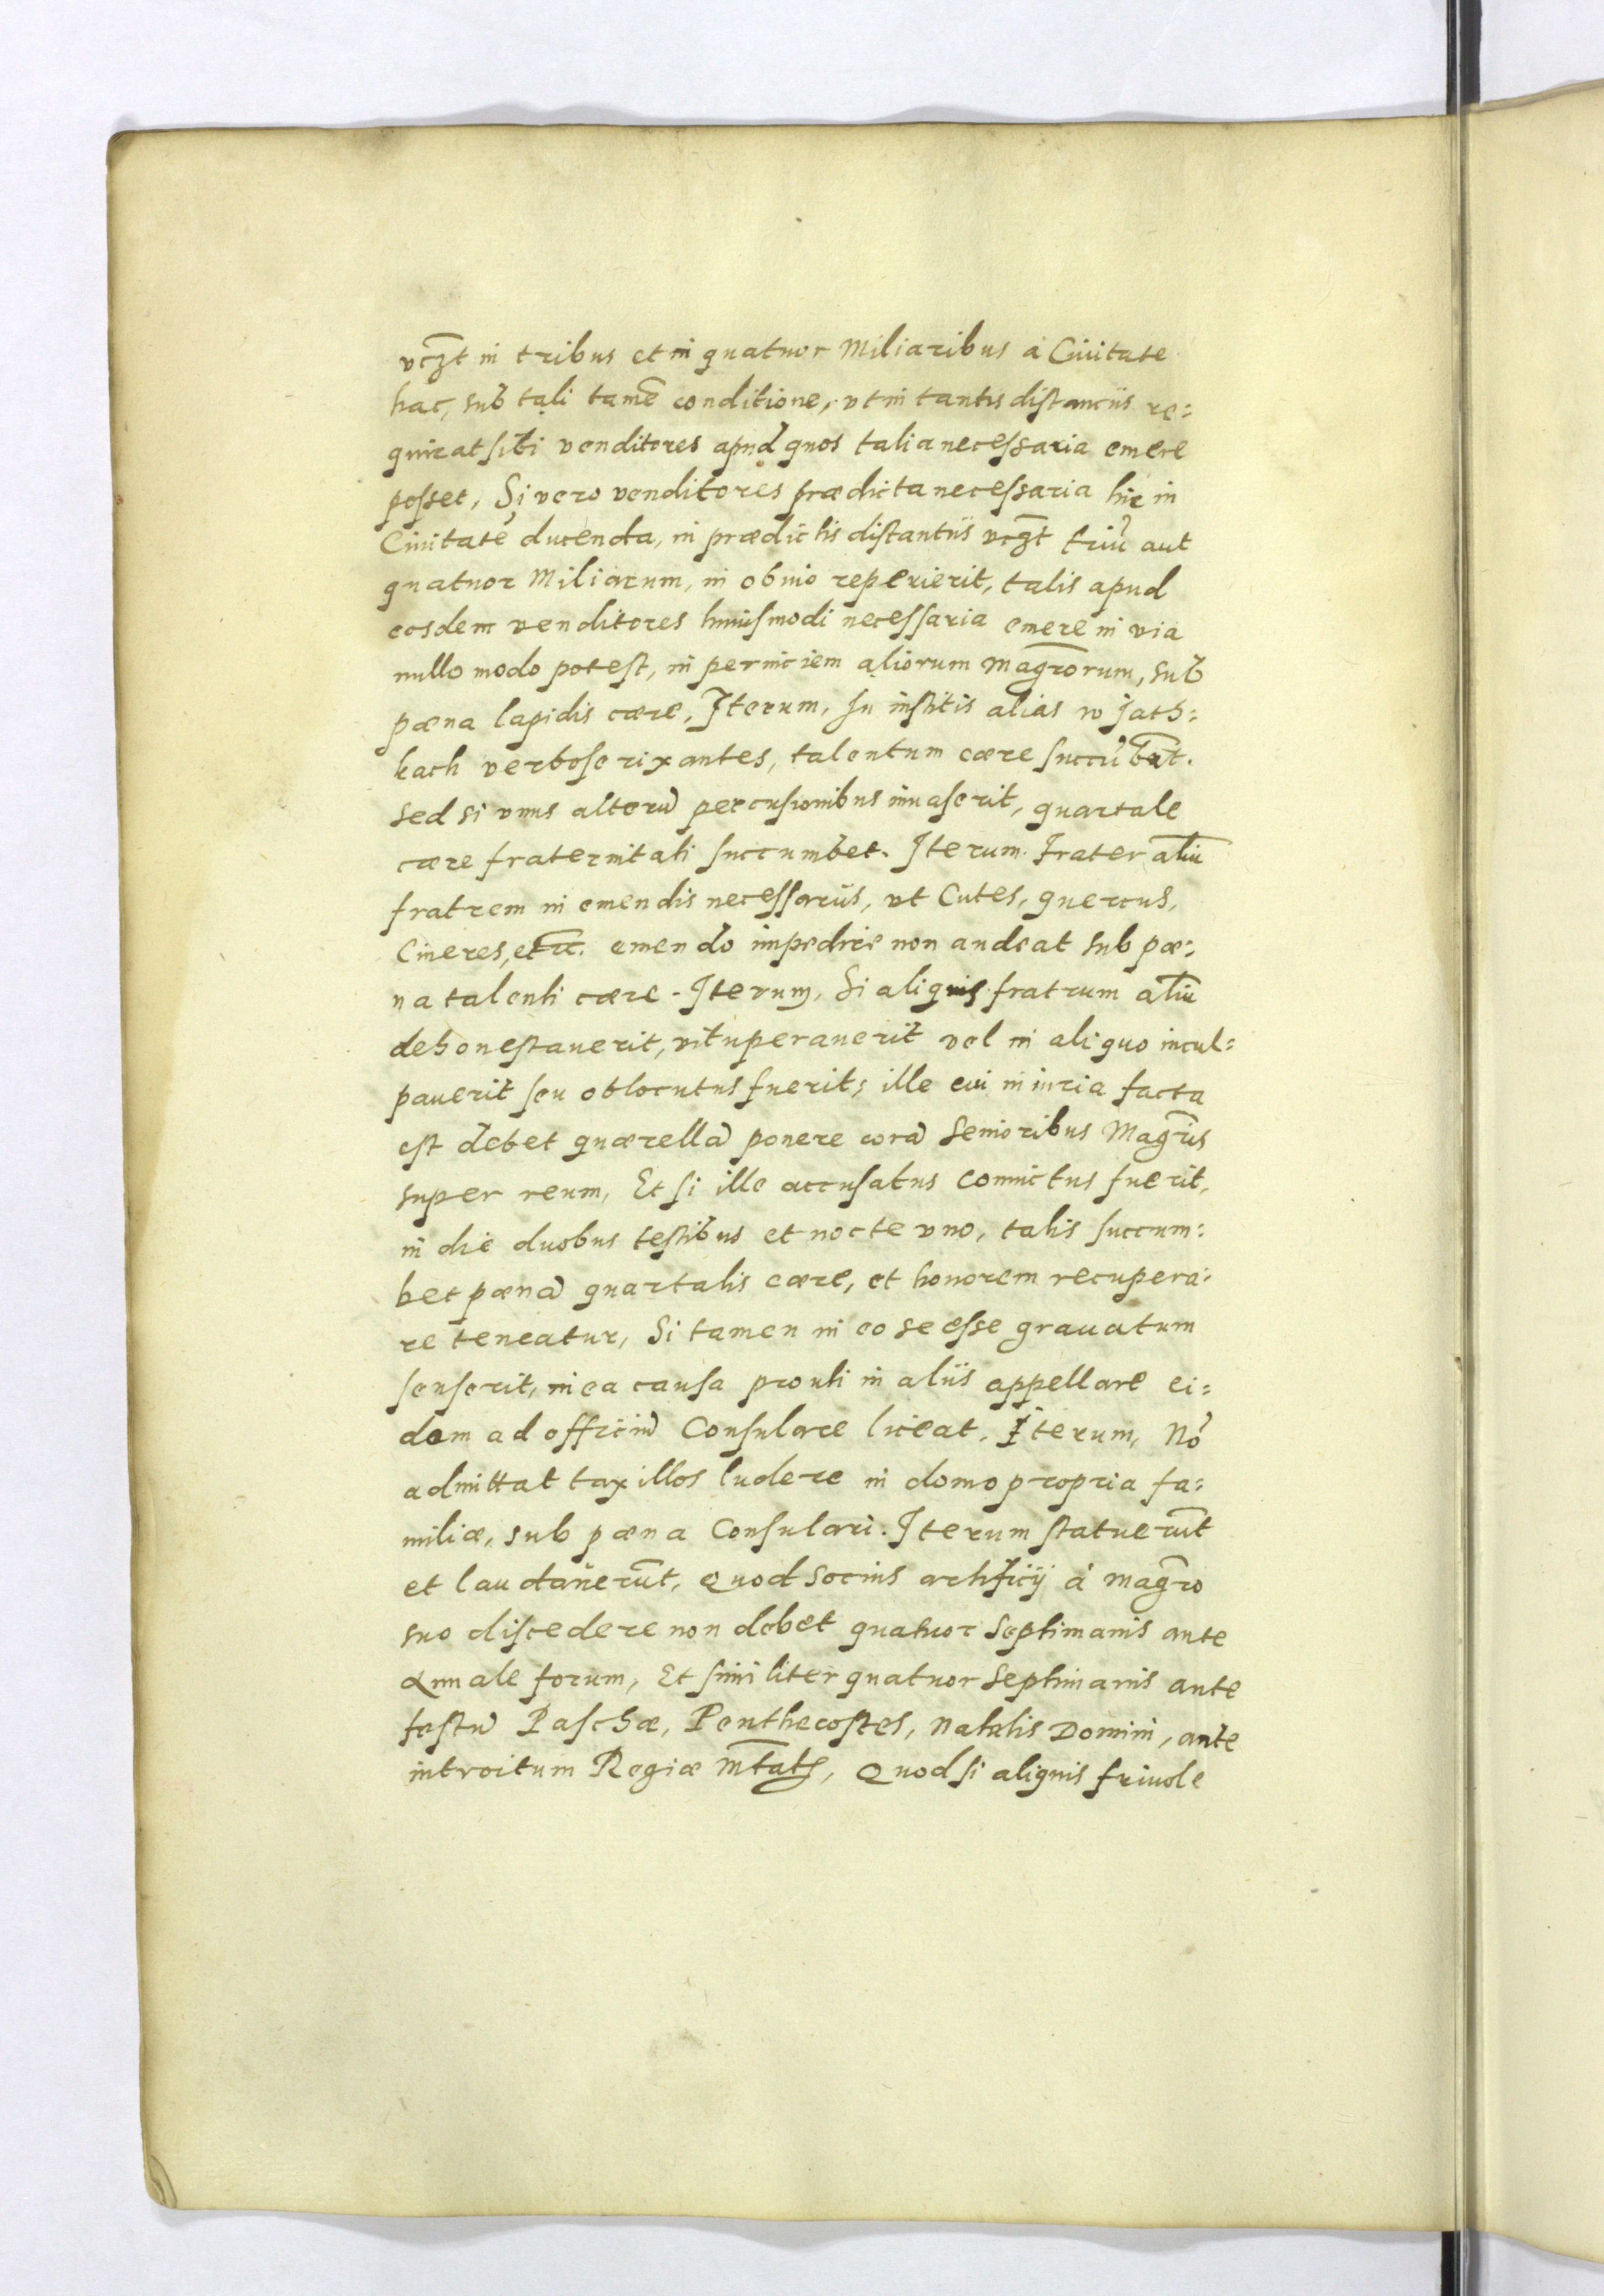 vczt in tribus et in quatuor Miliaribus à Ciuitate
hac, sub tali tamē conditione, vt in tantis distanciis re=
quirat sibi venditores apud quos talia necessaria emere
posset, Si vero venditores prædicta necessaria hic in
Ciuitatē ducenda, in prædictis distantiis vczt triū aut
quatuor Miliarum, in obuio reperierit, talis apud
eosdem venditores huiusmodi necessaria emere in via
nullo modo potest, in perniciem aliorum magr̄orum, sub
pœna lapidis cæræ, Iterum, In institis alias w Jath=
kach verbose rixantes, talentum cere succūbāt.
Sed si vnus alterū percusionibus inuaserit, quartale
cære fraternitati succumbet. Iterum. Frater aliū
fratrem in emendis necessariis, vt Cutes, quercus,
Cineres, etc̄. emendo impedire non audeat sub pœ=
na talenti cære. Iterum, Si aliquis fratrum aliū
dehonestauerit, vituperauerit vel in aliquo incul=
pauerit seu oblocutus fuerit, ille cui iniuria facta
est debet quærellā ponere corā Senioribus Magr̄is
super reum, Et si ille accusatus conuictus fuerit,
in die duobus testibus et nocte vno, talis succum=
bet pœnā quartalis cære, et honorem recupera=
re teneatur, Si tamen in eo se esse grauatum
senserit, in ea causa prouti in aliis appellare ei=
dem ad officiū Consulare liceat, Iterum, Nō
admittat taxillos ludere in domo propria fa=
miliæ, sub pœna Consulari. Iterum statuerūt
et laudauerūt, Quod Socius artificij à magr̄o
suo discedere non debet quatuor Septimanis ante
Annale forum, Et similiter quatuor Septimanis ante
festū Paschæ, Penthecostes, Natalis Domini, ante
introitum Regiæ Mtatis, Quod si aliquis friuole